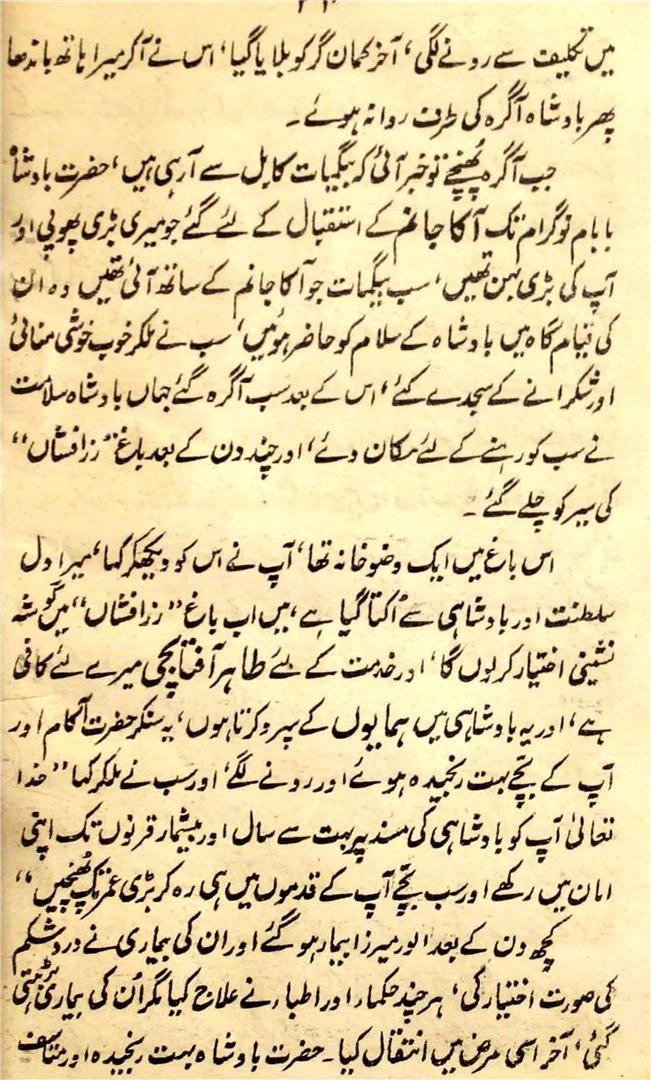 میں تکلیف سے رونے لگی، آخر کمان گر کو بلایا گیا، اس نے آکر میرا ہاتھ باندھا
پھر بادشاہ آگرہ کی طرف روانہ ہوئے۔
جب آگرہ پہنچے تو خبر آئی کہ بیگمات کابل سے آرہی ہیں، حضرت بادشاہ
بابام نوگرام تک آکا جانم کے استقبال کے لئے گئے جو میری بڑی پھوپی اور
آپ کی بڑی بہن تھیں، سب بیگمات جو آکا جانم کے ساتھ آئی تھیں وہ ان
کی قیام گاہ میں بادشاہ کے سلام کو حاضر ہوئیں، سب نے ملکر خوب خوشی منائی
اور شکرانے کے سجدے کئے، اس کے بعد سب آگرہ گئے جہاں بادشاہ سلامت
نے سب کو رہنے کے لئے مکان دئے، اور چند دن کے بعد باغ "زرافشاں"
کی سیر کو چلے گئے۔
اس باغ میں ایک وضو خانہ تھا، آپ نے اس کو دیکھکر کہا، میرا دل
سلطنت اور بادشاہی سے اُکتا گیا ہے، میں اب باغ "زرافشاں" میں گوشہ
نشینی اختیار کر لوں گا، اور خدمت کے لئے طاہر آفتابچی میرے لئے کافی
ہے، اور یہ بادشاہی میں ہمایوں کے سپرد کرتا ہوں، یہ سنکر حضرت آکام اور
آپ کے بچے بہت رنجیدہ ہوئے اور رونے لگے، اور سب نے ملکر کہا "خدا
تعالیٰ آپ کو بادشاہی کی مسند پر بہت سے سال اور بیشمار قرنوں تک اپنی
امان میں رکھے اور سب بچے آپ کے قدموں میں ہی رہ کر بڑی عمر تک پہنچیں"
کچھ دن کے بعد الور میرزا بیمار ہوگئے اور ان کی بیماری نے درد شکم
کی صورت اختیار کی، ہر چند حکماء اور اطباء نے علاج کیا مگر اُن کی بیماری بڑھتی
گئی، آخر اسی مرض میں انتقال کیا۔ حضرت بادشاہ بہت رنجیدہ اور متاسف